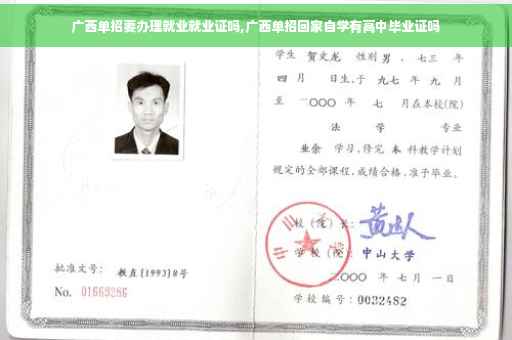 广西单招要办理就业就业证吗,广西单招回家自学有高中毕业证吗
学生 贺文龙 性别 男 、七三 年
四 月 日生,于 九七 年 九 月
至 二〇〇〇 年 七 月在本校(院)
法 学 专业
业余 学习,修完 本 科教学计划
规定的全部课程,成绩合格,准予毕业。
校(院)长:
学 校(院): 中山大学
批准文号: 教直(1993)8号
二〇〇〇 年 七 月 一 日
No. 01669286
学校编号: 0032482